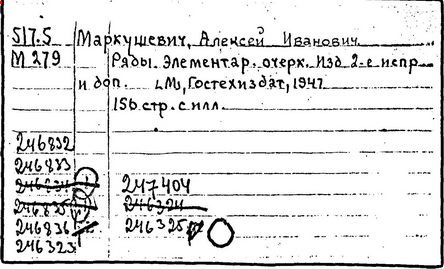 517.5 Маркушевич, Алексей Иванович
М 279 Ряды. Элементар. очерк. Изд. 2-е испр
и доп. М., Гостехиздат, 1947
156 стр. с илл.
246832
246833
246834 247404
246835 246324
246836 246325
246323